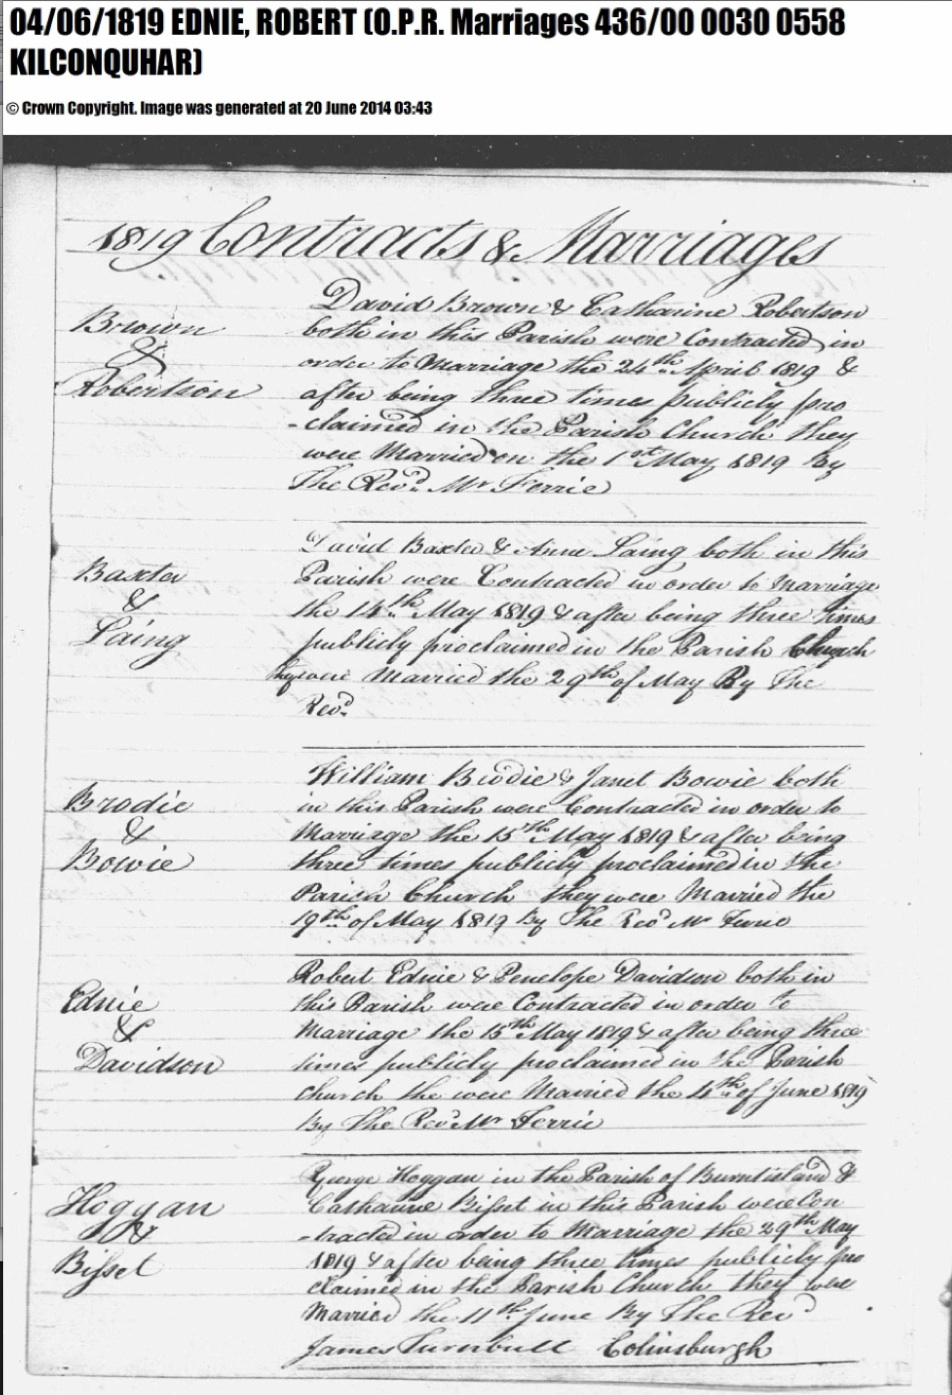 04/06/1819 EDNIE, ROBERT (O.P.R. Marriages 436/00 0030 0558
KILCONQUHAR)
© Crown Copyright. Image was generated at 20 June 2014 03:43
1819 Contracts & Marriages
Brown
&
Robertson
David Brown & Catharine Robertson
both in this Parish were Contracted in
order to Marriage the 24th April 1819 &
after being three times publicly pro
-claimed in the Parish Church they
were Married on the 1st May 1819 by
The Revd. Mr Ferrie
Baxter
&
Laing
David Baxter & Anne Laing both in this
Parish were Contracted in order to Marriage
the 14th May 1819 & after being three times
publicly proclaimed in the Parish Church
they were Married the 29th of May By The
Revd.
Brodie
&
Bowie
William Brodie & Janet Bowie both
in this Parish were Contracted in order to
Marriage the 15th May 1819 & after being
three times publicly proclaimed in the
Parish Church they were Married the
19th of May 1819 By The Revd Mr Ferrie
Ednie
&
Davidson
Robert Ednie & Penelope Davidson both in
this Parish were Contracted in order to
Marriage the 15th May 1819 & after being three
times publicly proclaimed in the Parish
Church the were Married the 4th of June 1819
By The Revd Mr Ferrie
Hoggan
&
Bisset
George Hoggan in the Parish of Burntisland &
Catharine Bisset in this Parish were Con
-tracted in order to Marriage the 29th May
1819 & after being three times publicly pro
claimed in the Parish Church they were
Married the 11th June By The Revd
James Turnbull Colinsburgh